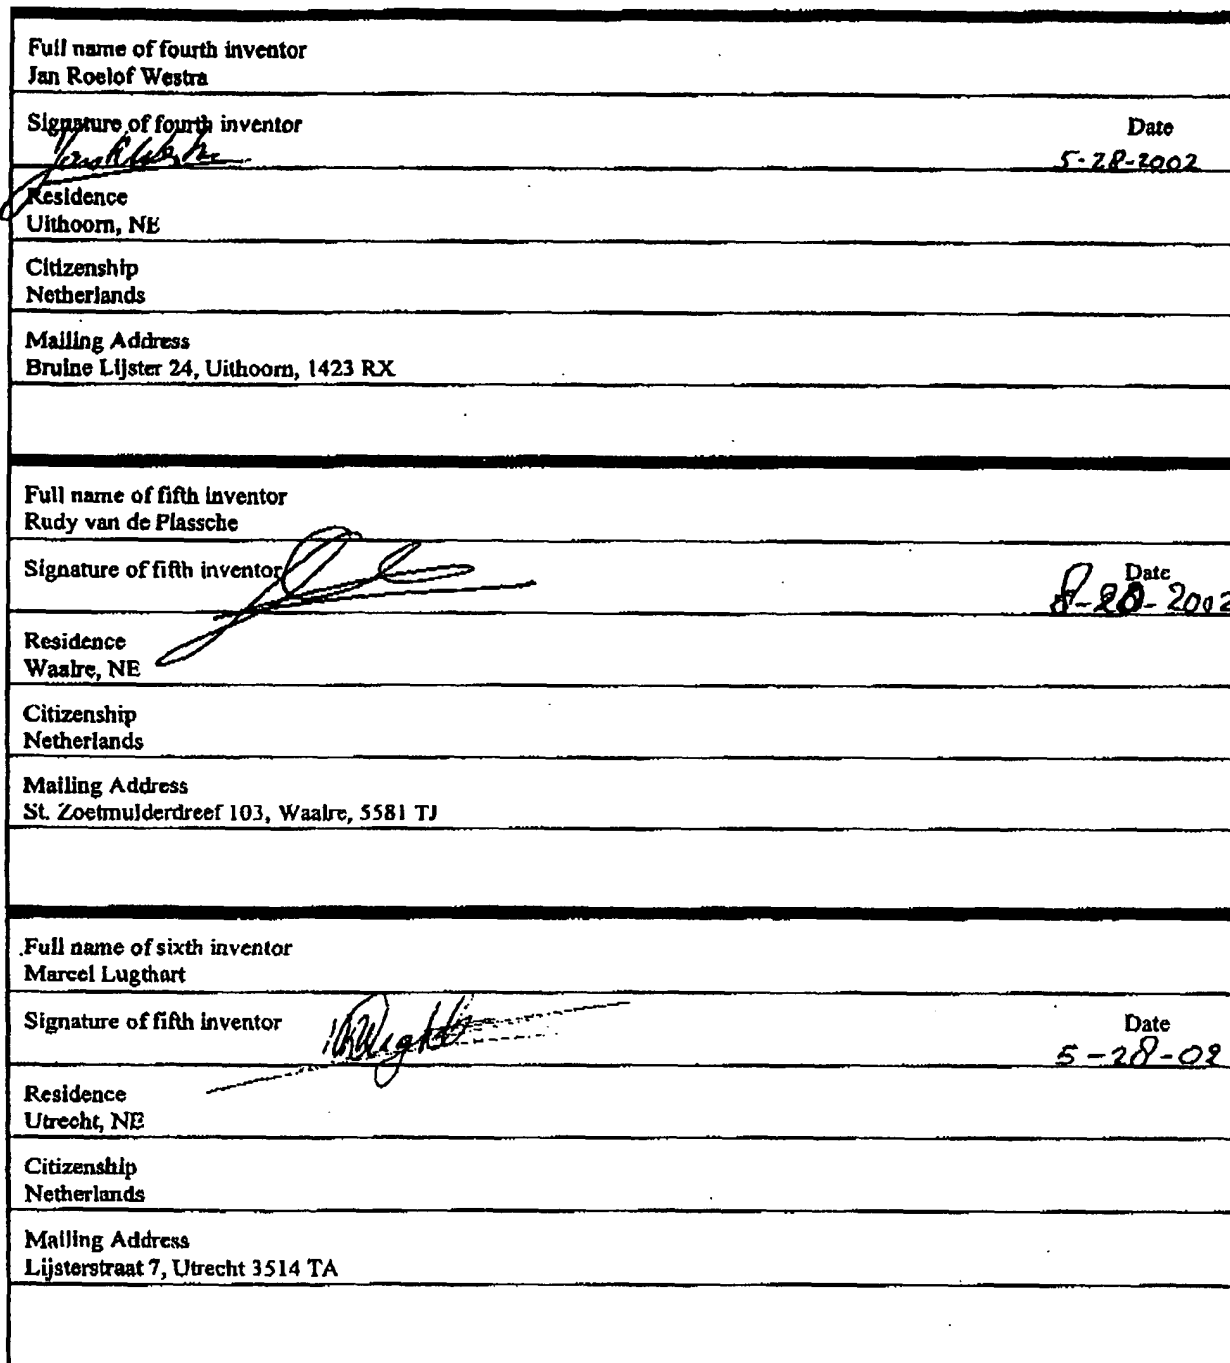 Full name of fourth inventor
Jan Roelof Westra
Signature of fourth inventor
Date
5-28-2002
Residence
Uithoorn, NE
Citizenship
Netherlands
Mailing Address
Bruine Lijster 24, Uithoorn, 1423 RX
Full name of fifth inventor
Rudy van de Plassche
Signature of fifth inventor
Date
8-20-2002
Residence
Waalre, NE
Citizenship
Netherlands
Mailing Address
St. Zoetmulderdreef 103, Waalre, 5581 TJ
Full name of sixth inventor
Marcel Lugthart
Signature of fifth inventor
Date
5-28-02
Residence
Utrecht, NE
Citizenship
Netherlands
Mailing Address
Lijsterstraat 7, Utrecht 3514 TA